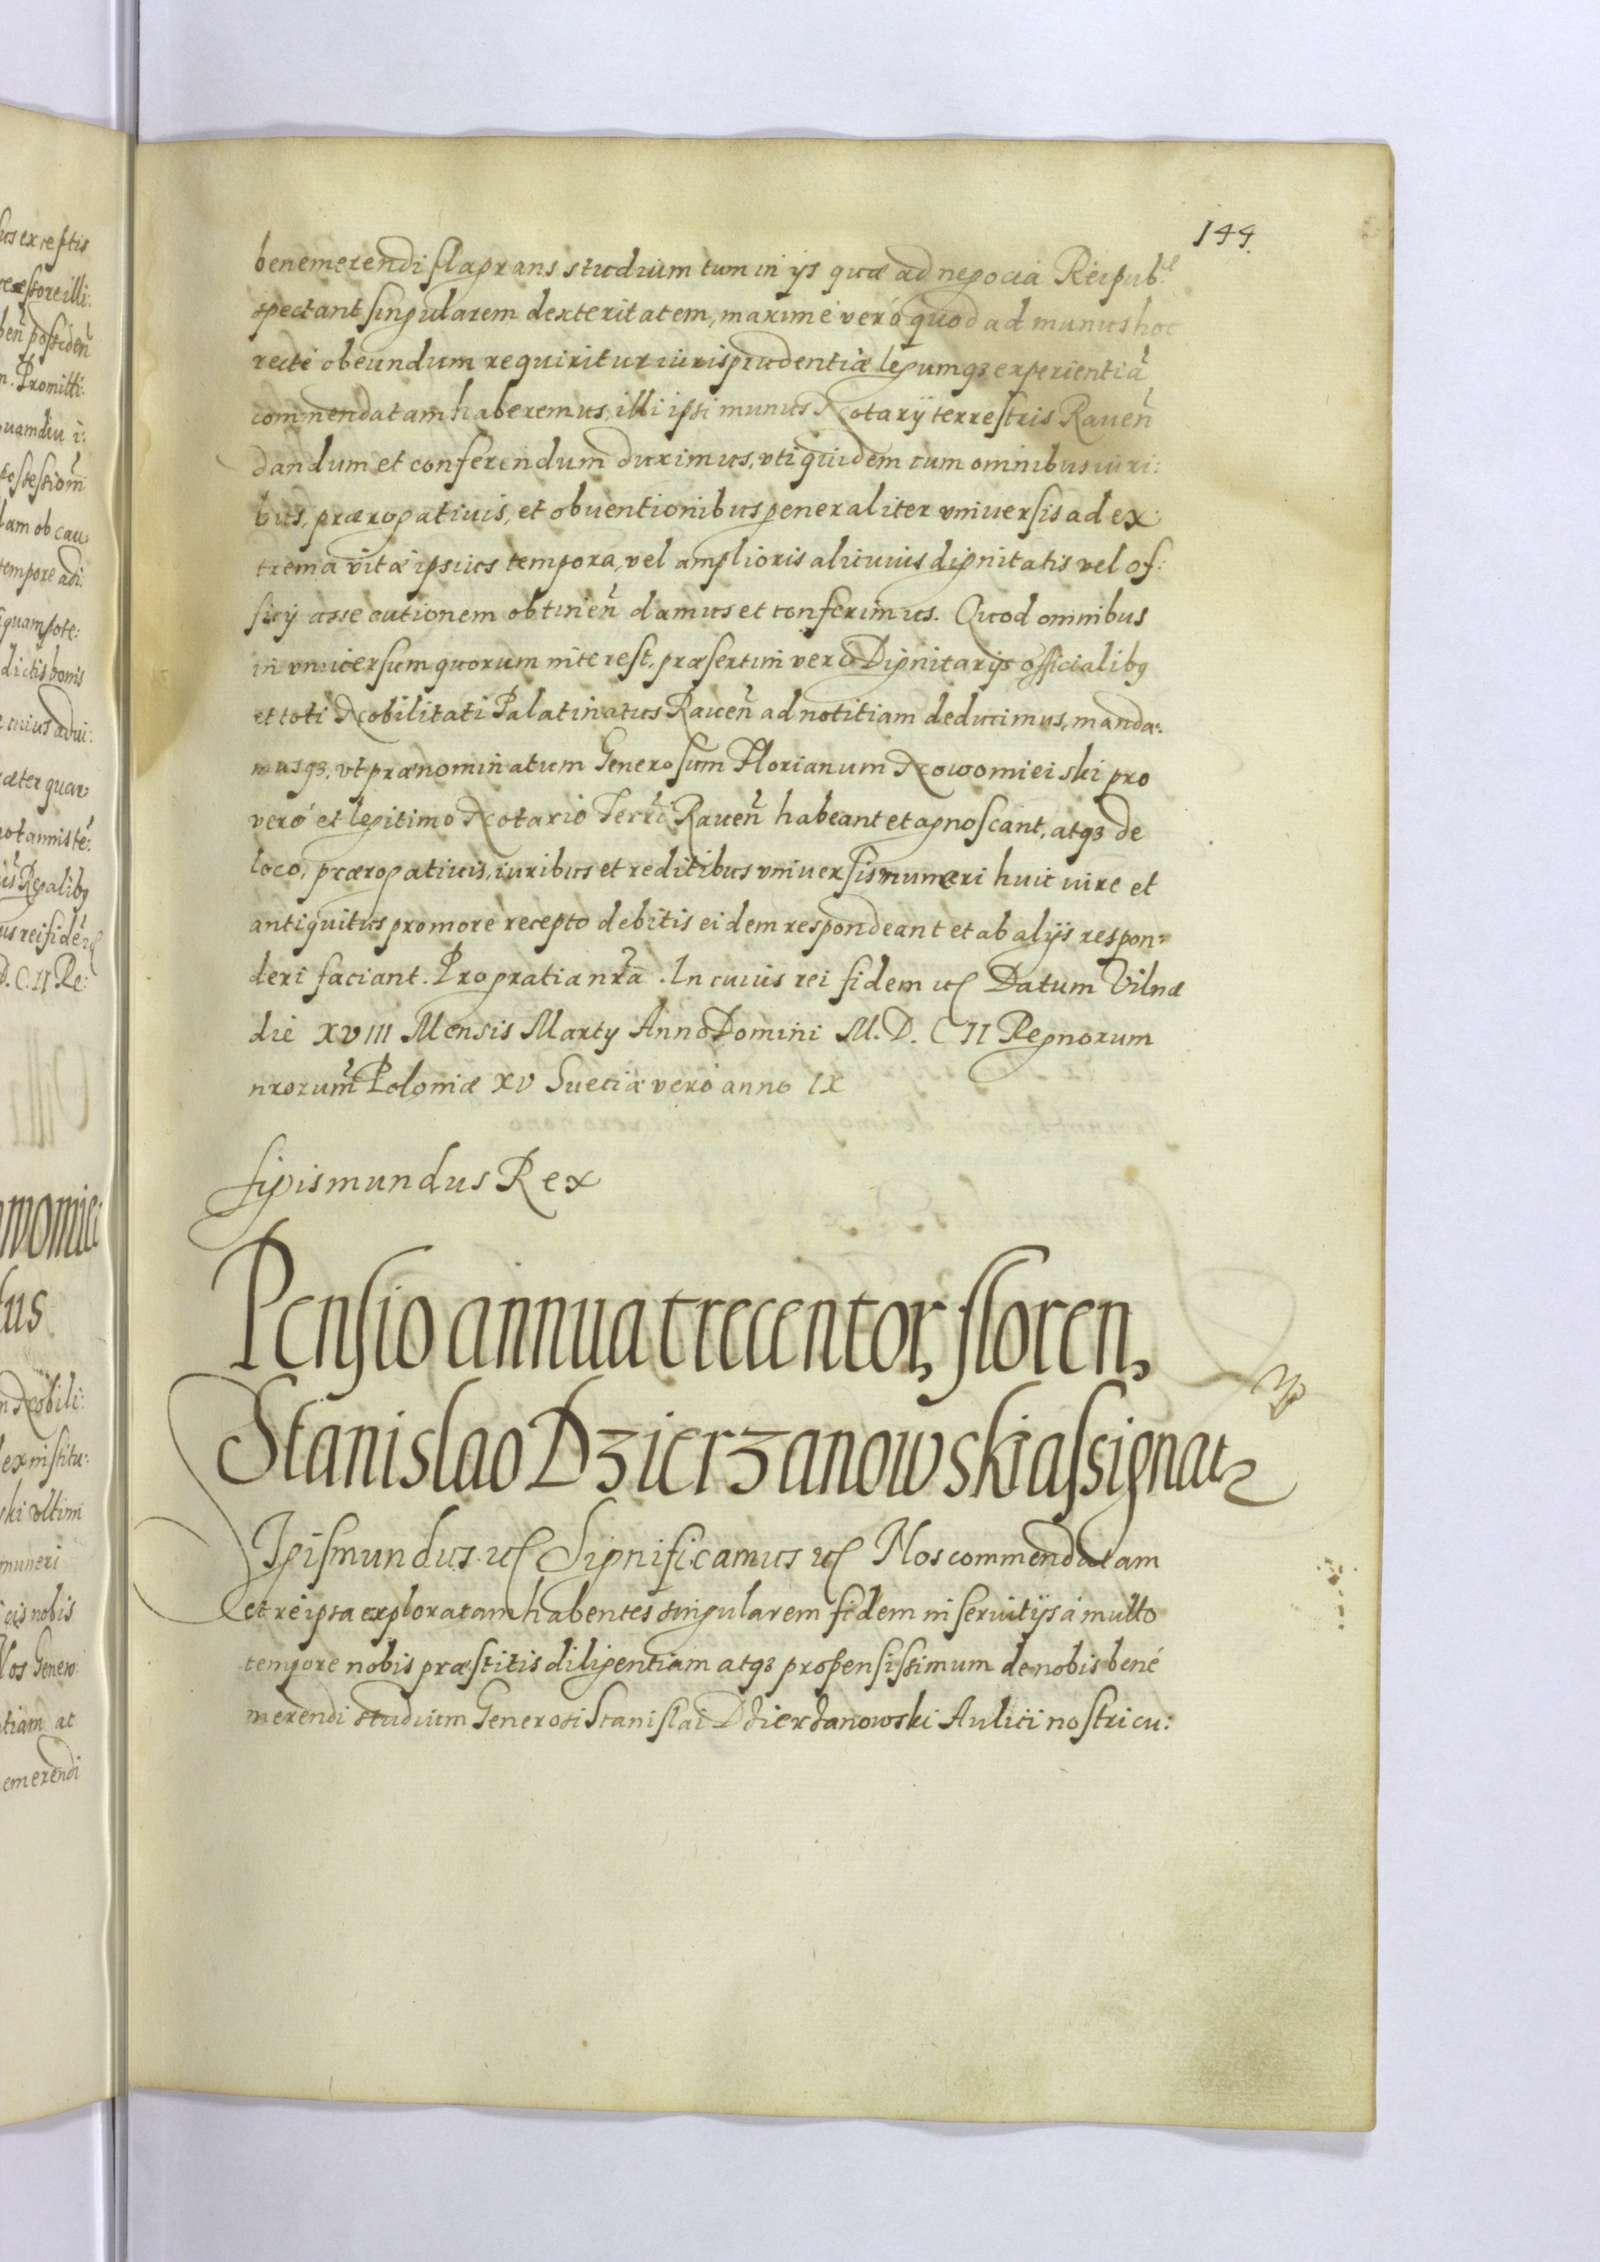 144.
benemerendi flagrans studium tum in ijs quæ ad negocia Reipub.
spectant singularem dexteritatem, maximè verò quod ad munus hoc
rectè obeundum requiritur iurisprudentiæ legumqз experientiã
commendatam haberemus, illi ipsi munus Notarij terrestris Raueñ
dandum et conferendum duximus, vti quidem cum omnibus iuri:
bus, prærogatiuis, et obuentionibus generaliter vniuersis ad ex:
trema vitæ ipsius tempora, vel amplioris alicuius dignitatis vel of:
ficij assecutionem obtineñ damus et conferimus. Quod omnibus
in vniuersum quorum interest, præsertim verò Dignitarijs officialibꝯ
et toti Nobilitati Palatinatus Raueñ ad notitiam deducimus, manda:
musqз, vt prænominatum Generosum Florianum Nowomieiski pro
verò et legitimo Notario Terr̃i Raueñ habeant et agnoscant, atqз de
loco, prærogatiuis, iuribus et reditibus vniuersis muneri huic iure et
antiquitus pro more recepto debitis eidem respondeant et ab alijs respon=
deri faciant. Pro gratia nr̃a. In cuius rei fidem etc Datum Vilnæ
die XVIII Mensis Martij Anno Domini M.D.C II Regnorum
nrorum̃ Poloniæ XV Sueciæ verò anno IX
Sigismundus Rex
Pensio annua trecentor, floren,
Stanislao Dzierzanowski assignat
Sigismundus etc Significamus etc Nos commendatam
et reipsa exploratam habentes singularem fidem in seruitijs à multo
tempore nobis præstitis diligentiam atqз propensissimum de nobis benè
merendi studium Generosi Stanislai Dzierzanowski Aulici nostri cu: